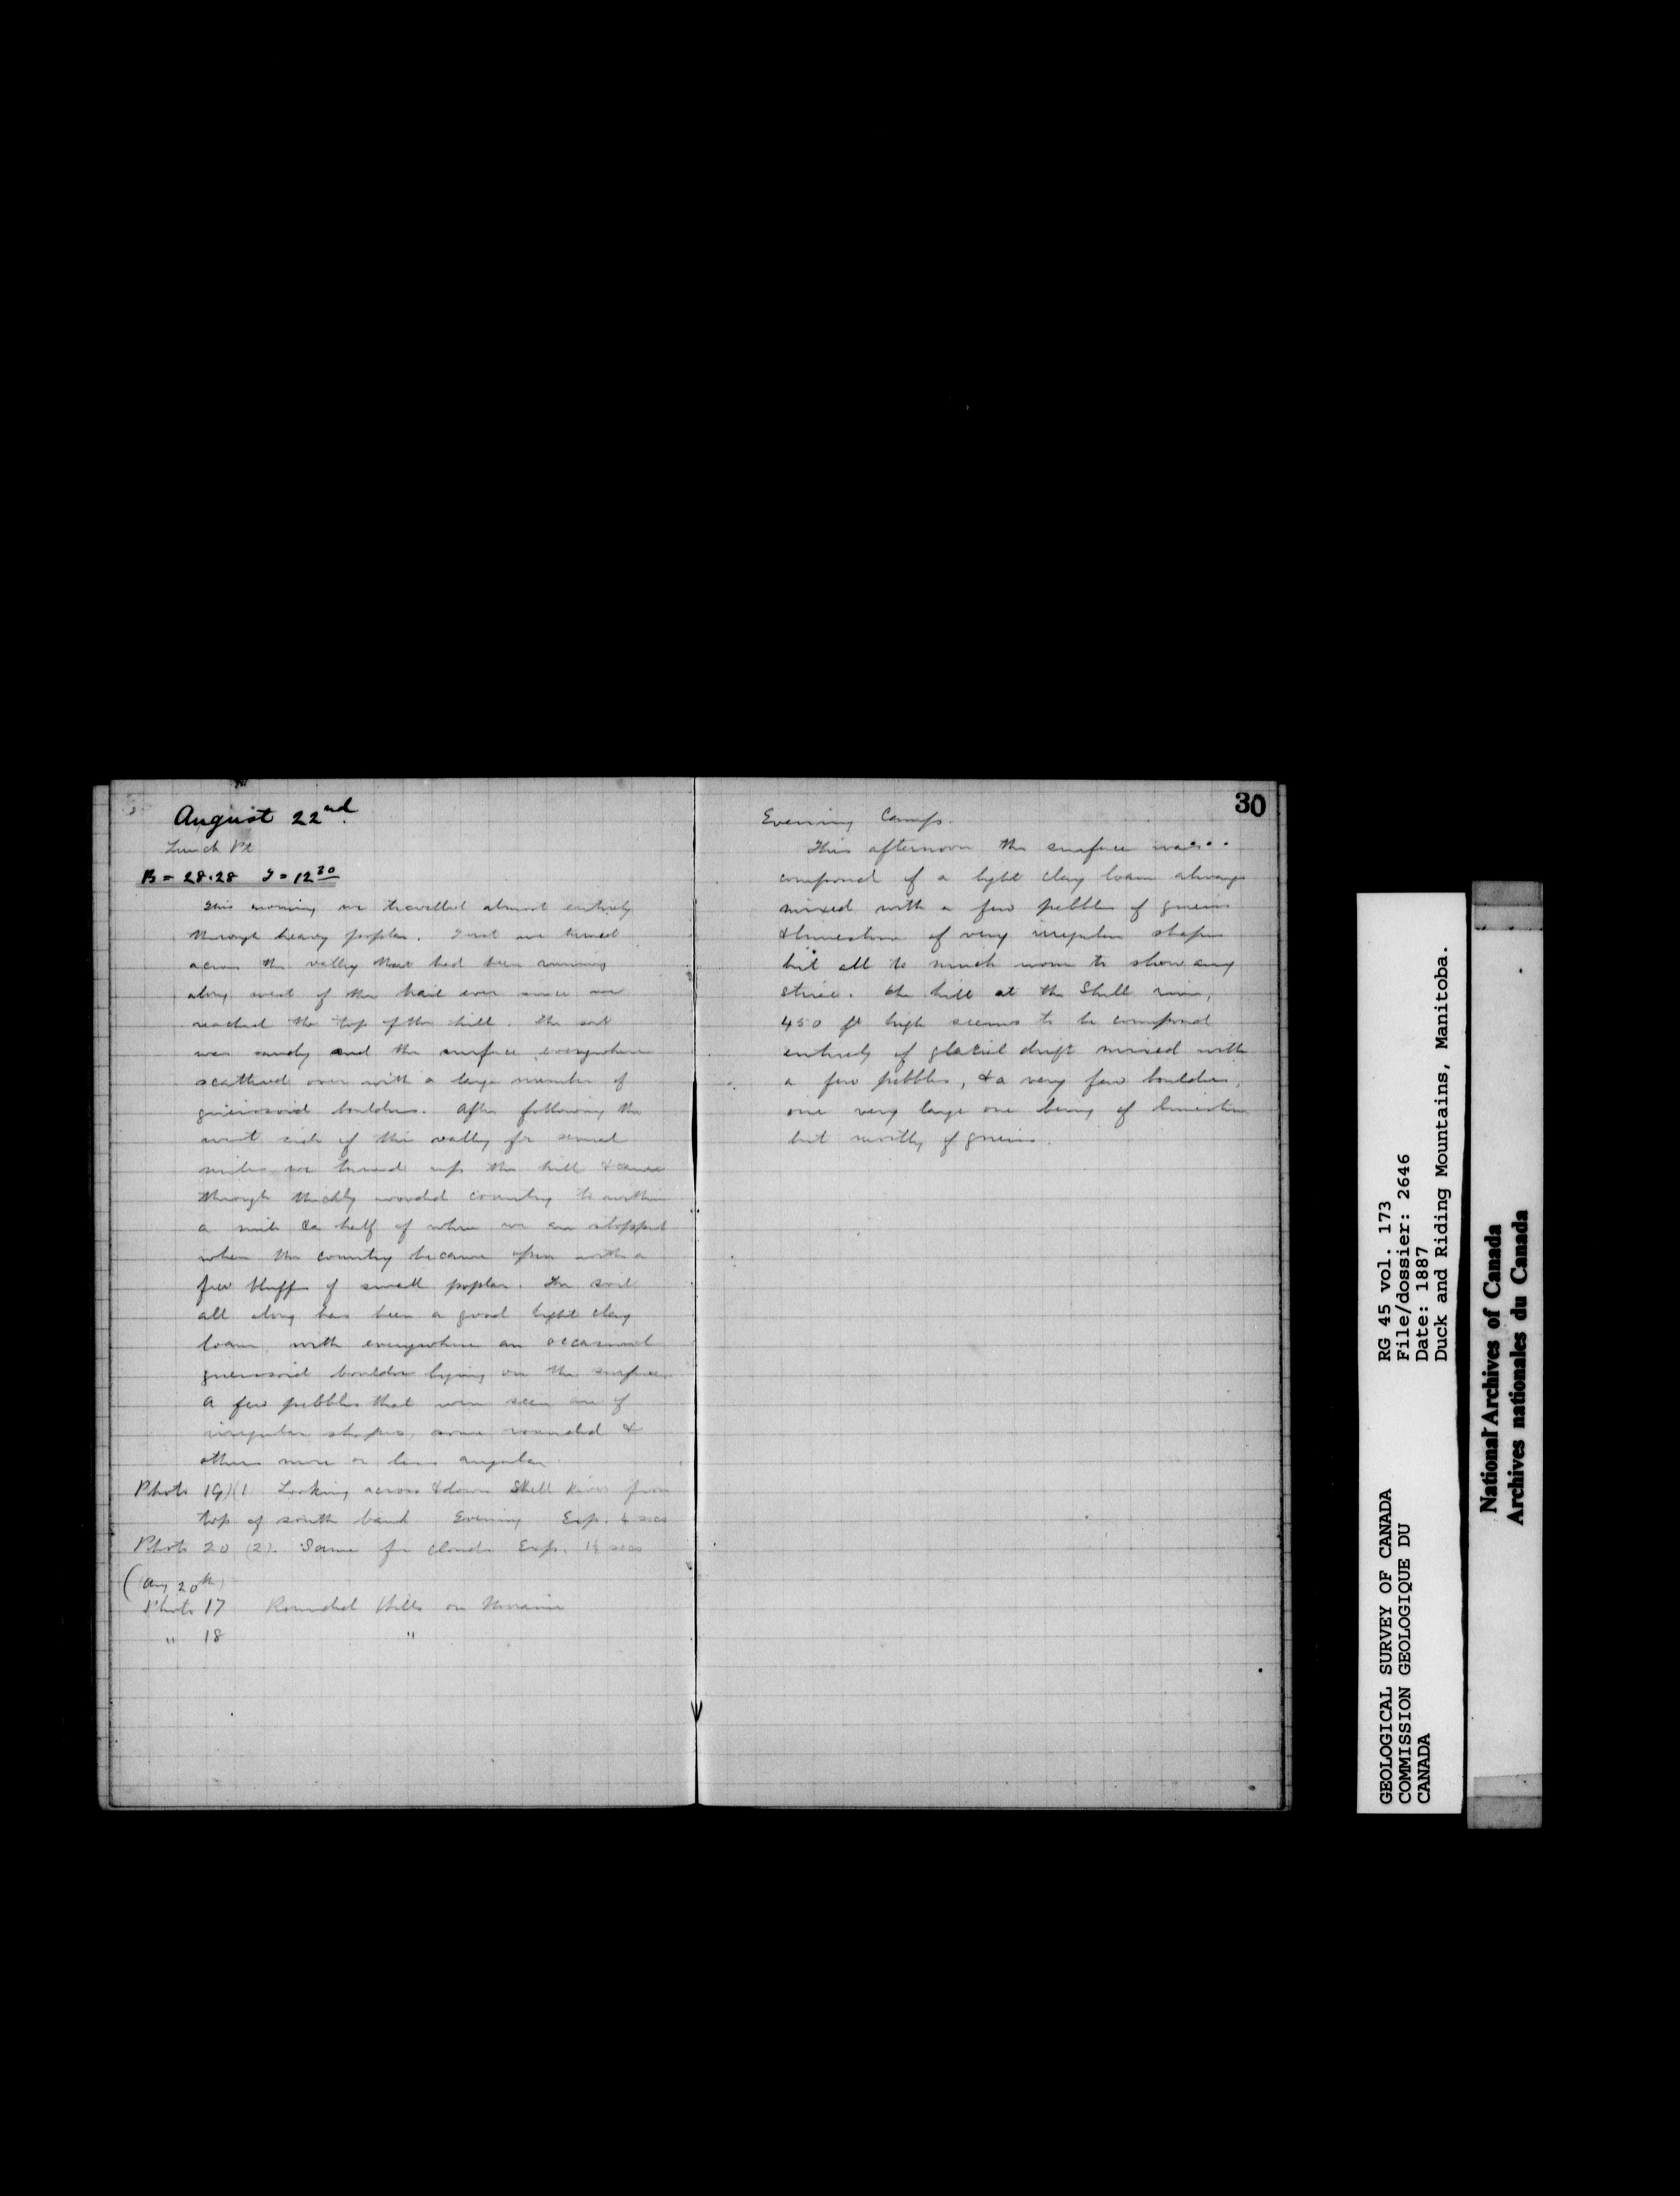 August 22nd.
Lunch Pt
B = 28.28 T = 12 30
This morning we travelled almost entirely
through heavy poplar. First we turned
across the valley that had been running
along west of the trail ever since we
reached the top of the hill. The soil
was sandy and the surface everywhere
scattered over with a large number of
gneissoid boulders. After following the
west side of this valley for several
miles we turned up the hill & came
through thickly wooded country to within
a mile & a half of where we are stopped
when the country became open with a
few bluffs of small poplar. The soil
all along has been a good light clay
loam with everywhere an occasional
gneissoid boulder lying on the surface.
A few pebbles that were seen are of
irregular shapes, some rounded &
others more or less angular.
Photo 19 (1) Looking across & down Shell River from
top of south bank Evening Exp. 4 secs
Photo 20 (2). Same for clouds Exp. 1½ secs
(Aug 20th)
Photo 17 Rounded Hills on Moraine
" 18 "
30
Evening Camp.
This afternoon the surface was
composed of a light clay loam always
mixed with a few pebbles of gneiss
& limestone of very irregular shapes
but all to much worn to show any
striæ. The hill at the Shell river,
450 ft high seems to be composed
entirely of glacial drift mixed with
a few pebbles, & a very few boulders,
one very large one being of limestone
but mostly of gneiss.
GEOLOGICAL SURVEY OF CANADA
COMMISSION GEOLOGIQUE DU
CANADA
RG 45 vol. 173
File/dossier: 2646
Date: 1887
Duck and Riding Mountains, Manitoba.
National Archives of Canada
Archives nationales du Canada